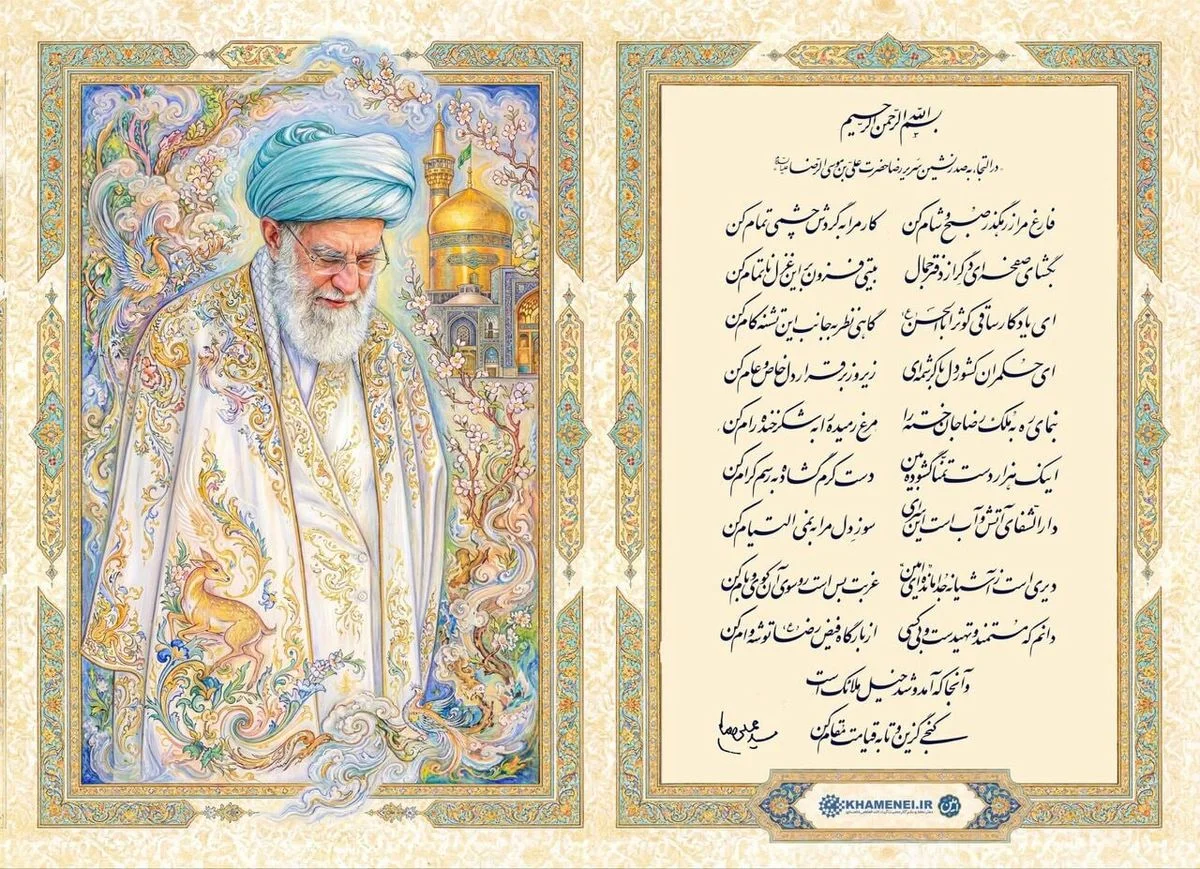 بسم الله الرحمن الرحیم
در التجاء به صدرنشین سریر رضا حضرت علی بن موسی الرضا
فارغ مرا ز رهگذر صبح و شام کن کار مرا به گردش چشمی تمام کن
بگشای صفحه‌ای دگر از دفتر جمال بیتی فزون بر این غزل ناتمام کن
ای یادگار ساقی کوثر اباالحسن (ع) گاهی نظر به جانب این تشنه کام کن
ای حکمران کشور دل با کرشمه‌ای زیر و زبر قرار دل خاص و عام کن
بنمای ره به ملک رضا جان خسته را مرغ رمیده را به شکرخنده رام کن
اینک هزار دست تمنا گشوده بین دست کرم گشاده به رسم کرام کن
دارالشفای آتش و آب است این سرای سوز دل مرا به نمی التیام کن
دیری است ز آشیانه جدا مانده‌ای امین غربت بس است رو سوی آن کوی و بام کن
دانم که مستمند و تهیدست و بی‌کسی از بارگاه فیض رضا (ع) توشه وام کن
وآنجا که آمد و شد خیل ملائک است
کنجی گزین و تا به قیامت مقام کن
KHAMENEI.IR